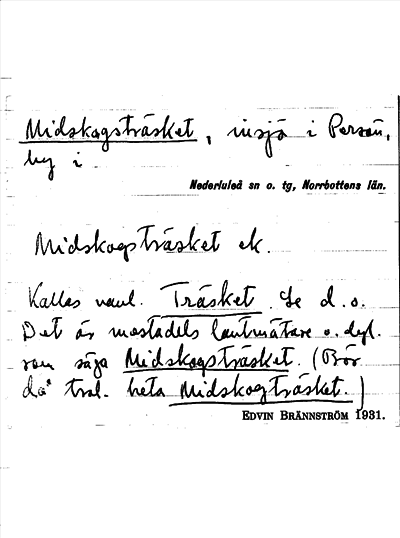 Midskogsträsket, insjö i Persön,
by i
Nederluleå sn o. tg, Norrbottens län.
Midskogsträsket ek.
Kallas vanl. Träsket. Se d.o.
Det är mestadels lantmätare o. dyl.
som säga Midskogsträsket. (Bör
då trol. heta Midskogträsket.)
EDVIN BRÄNNSTRÖM 1931.